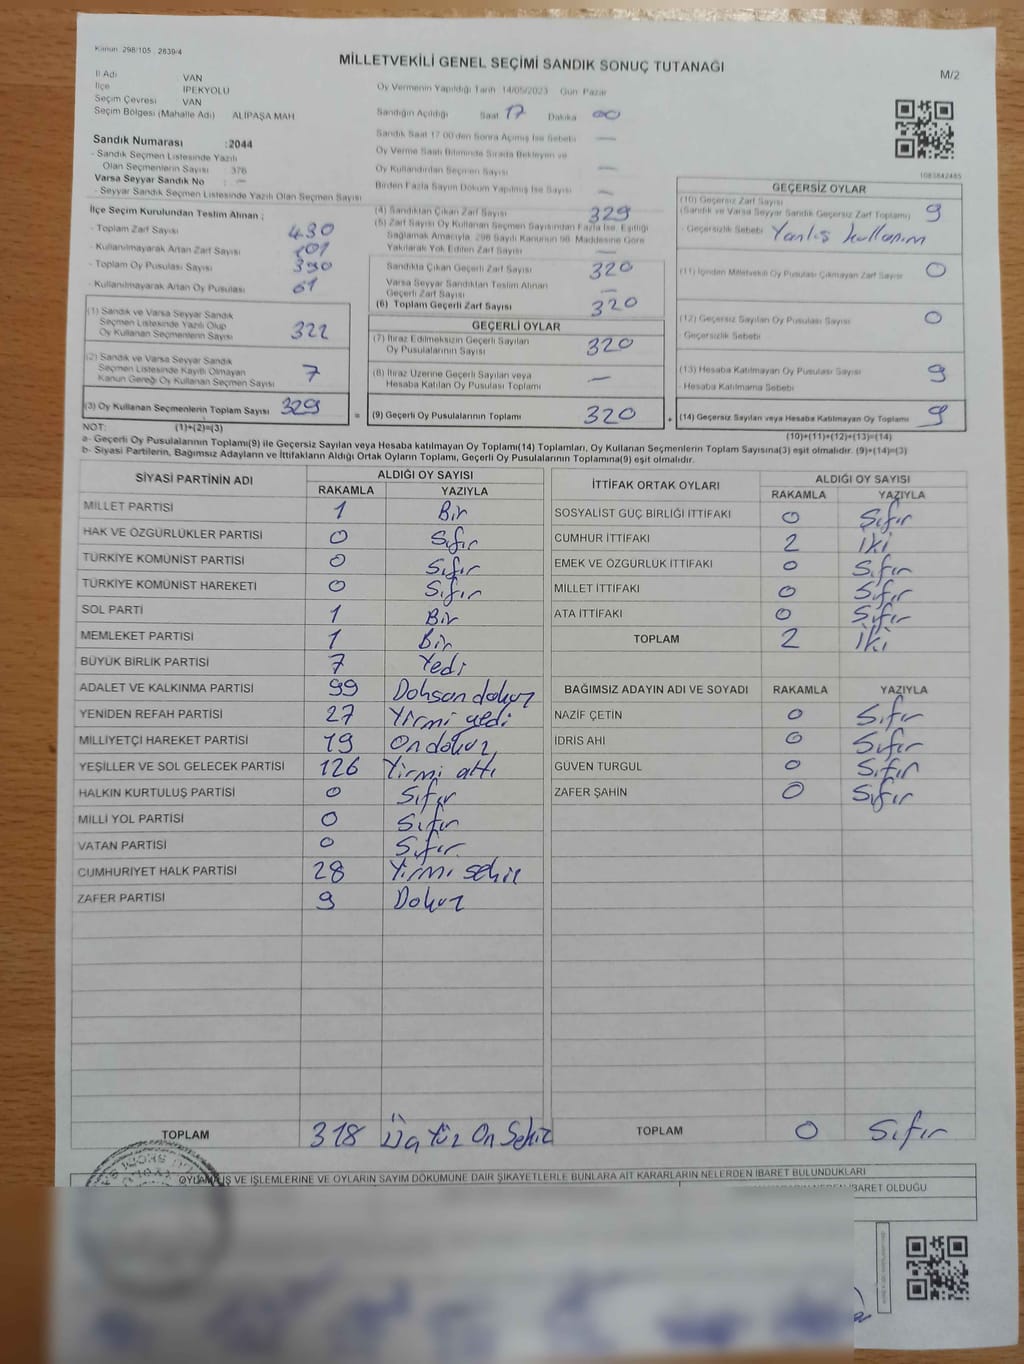 Kanun 298/105 2839/4
MİLLETVEKİLİ GENEL SEÇİMİ SANDIK SONUÇ TUTANAĞI
M/2
İl Adı : VAN
İlçe İPEKYOLU
Seçim Çevresi VAN
Seçim Bölgesi (Mahalle Adı) ALİPAŞA MAH
Sandık Numarası :2044
- Sandık Seçmen Listesinde Yazılı
Olan Seçmenlerin Sayısı : 376
Varsa Seyyar Sandık No : —
- Seyyar Sandık Seçmen Listesinde Yazılı Olan Seçmen Sayısı
Oy Vermenin Yapıldığı Tarih 14/05/2023 Gün Pazar
Sandığın Açıldığı Saat 17 Dakika 00
Sandık Saat 17 00'den Sonra Açılmış İse Sebebi —
Oy Verme Saati Bitiminde Sırada Bekleyen ve
Oy Kullandırılan Seçmen Sayısı —
Birden Fazla Sayım Döküm Yapılmış İse Sayısı —
1083842485
İlçe Seçim Kurulundan Teslim Alınan ;
- Toplam Zarf Sayısı 430
- Kullanılmayarak Artan Zarf Sayısı 101
- Toplam Oy Pusulası Sayısı 390
- Kullanılmayarak Artan Oy Pusulası 61
(1) Sandık ve Varsa Seyyar Sandık
Seçmen Listesinde Yazılı Olup
Oy Kullanan Seçmenlerin Sayısı 322
(2) Sandık ve Varsa Seyyar Sandık
Seçmen Listesinde Kayıtlı Olmayan
Kanun Gereği Oy Kullanan Seçmen Sayısı 7
(3) Oy Kullanan Seçmenlerin Toplam Sayısı 329
(4) Sandıktan Çıkan Zarf Sayısı 329
(5) Zarf Sayısı Oy Kullanan Seçmen Sayısından Fazla İse, Eşitliği
Sağlamak Amacıyla 298 Sayılı Kanunun 98. Maddesine Göre
Yakılarak Yok Edilen Zarf Sayısı —
Sandıkta Çıkan Geçerli Zarf Sayısı 320
Varsa Seyyar Sandıktan Teslim Alınan
Geçerli Zarf Sayısı —
(6) Toplam Geçerli Zarf Sayısı 320
GEÇERLİ OYLAR
(7) İtiraz Edilmeksizin Geçerli Sayılan
Oy Pusulalarının Sayısı 320
(8) İtiraz Üzerine Geçerli Sayılan veya
Hesaba Katılan Oy Pusulası Toplamı —
= (9) Geçerli Oy Pusulalarının Toplamı 320
GEÇERSİZ OYLAR
(10) Geçersiz Zarf Sayısı
(Sandık ve Varsa Seyyar Sandık Geçersiz Zarf Toplamı) 9
Geçersizlik Sebebi Yanlış kullanım
(11) İçinden Milletvekili Oy Pusulası Çıkmayan Zarf Sayısı 0
(12) Geçersiz Sayılan Oy Pusulası Sayısı 0
- Geçersizlik Sebebi
(13) Hesaba Katılmayan Oy Pusulası Sayısı 9
- Hesaba Katılmama Sebebi
+ (14) Geçersiz Sayılan veya Hesaba Katılmayan Oy Toplamı 9
NOT: (1)+(2)=(3)
(10)+(11)+(12)+(13)=(14)
a- Geçerli Oy Pusulalarının Toplamı(9) ile Geçersiz Sayılan veya Hesaba katılmayan Oy Toplamı(14) Toplamları, Oy Kullanan Seçmenlerin Toplam Sayısına(3) eşit olmalıdır. (9)+(14)=(3)
b- Siyasi Partilerin, Bağımsız Adayların ve İttifakların Aldığı Ortak Oyların Toplamı, Geçerli Oy Pusulalarının Toplamına(9) eşit olmalıdır.
SİYASİ PARTİNİN ADI ALDIĞI OY SAYISI
RAKAMLA YAZIYLA
MİLLET PARTİSİ 1 Bir
HAK VE ÖZGÜRLÜKLER PARTİSİ 0 Sıfır
TÜRKİYE KOMÜNİST PARTİSİ 0 Sıfır
TÜRKİYE KOMÜNİST HAREKETİ 0 Sıfır
SOL PARTİ 1 Bir
MEMLEKET PARTİSİ 1 Bir
BÜYÜK BİRLİK PARTİSİ 7 Yedi
ADALET VE KALKINMA PARTİSİ 99 Doksan dokuz
YENİDEN REFAH PARTİSİ 27 Yirmi yedi
MİLLİYETÇİ HAREKET PARTİSİ 19 On dokuz
YEŞİLLER VE SOL GELECEK PARTİSİ 126 Yirmi altı
HALKIN KURTULUŞ PARTİSİ 0 Sıfır
MİLLİ YOL PARTİSİ 0 Sıfır
VATAN PARTİSİ 0 Sıfır
CUMHURİYET HALK PARTİSİ 28 Yirmi sekiz
ZAFER PARTİSİ 9 Dokuz
TOPLAM 318 Üç Yüz On Sekiz
İTTİFAK ORTAK OYLARI ALDIĞI OY SAYISI
RAKAMLA YAZIYLA
SOSYALİST GÜÇ BİRLİĞİ İTTİFAKI 0 Sıfır
CUMHUR İTTİFAKI 2 İki
EMEK VE ÖZGÜRLÜK İTTİFAKI 0 Sıfır
MİLLET İTTİFAKI 0 Sıfır
ATA İTTİFAKI 0 Sıfır
TOPLAM 2 İki
BAĞIMSIZ ADAYIN ADI VE SOYADI RAKAMLA YAZIYLA
NAZİF ÇETİN 0 Sıfır
İDRİS AHİ 0 Sıfır
GÜVEN TURGUL 0 Sıfır
ZAFER ŞAHİN 0 Sıfır
TOPLAM 0 Sıfır
İŞ VE İŞLEMLERİNE VE OYLARIN SAYIM DÖKÜMÜNE DAİR ŞİKAYETLERLE BUNLARA AİT KARARLARIN NELERDEN İBARET BULUNDUKLARI
İBARET OLDUĞU